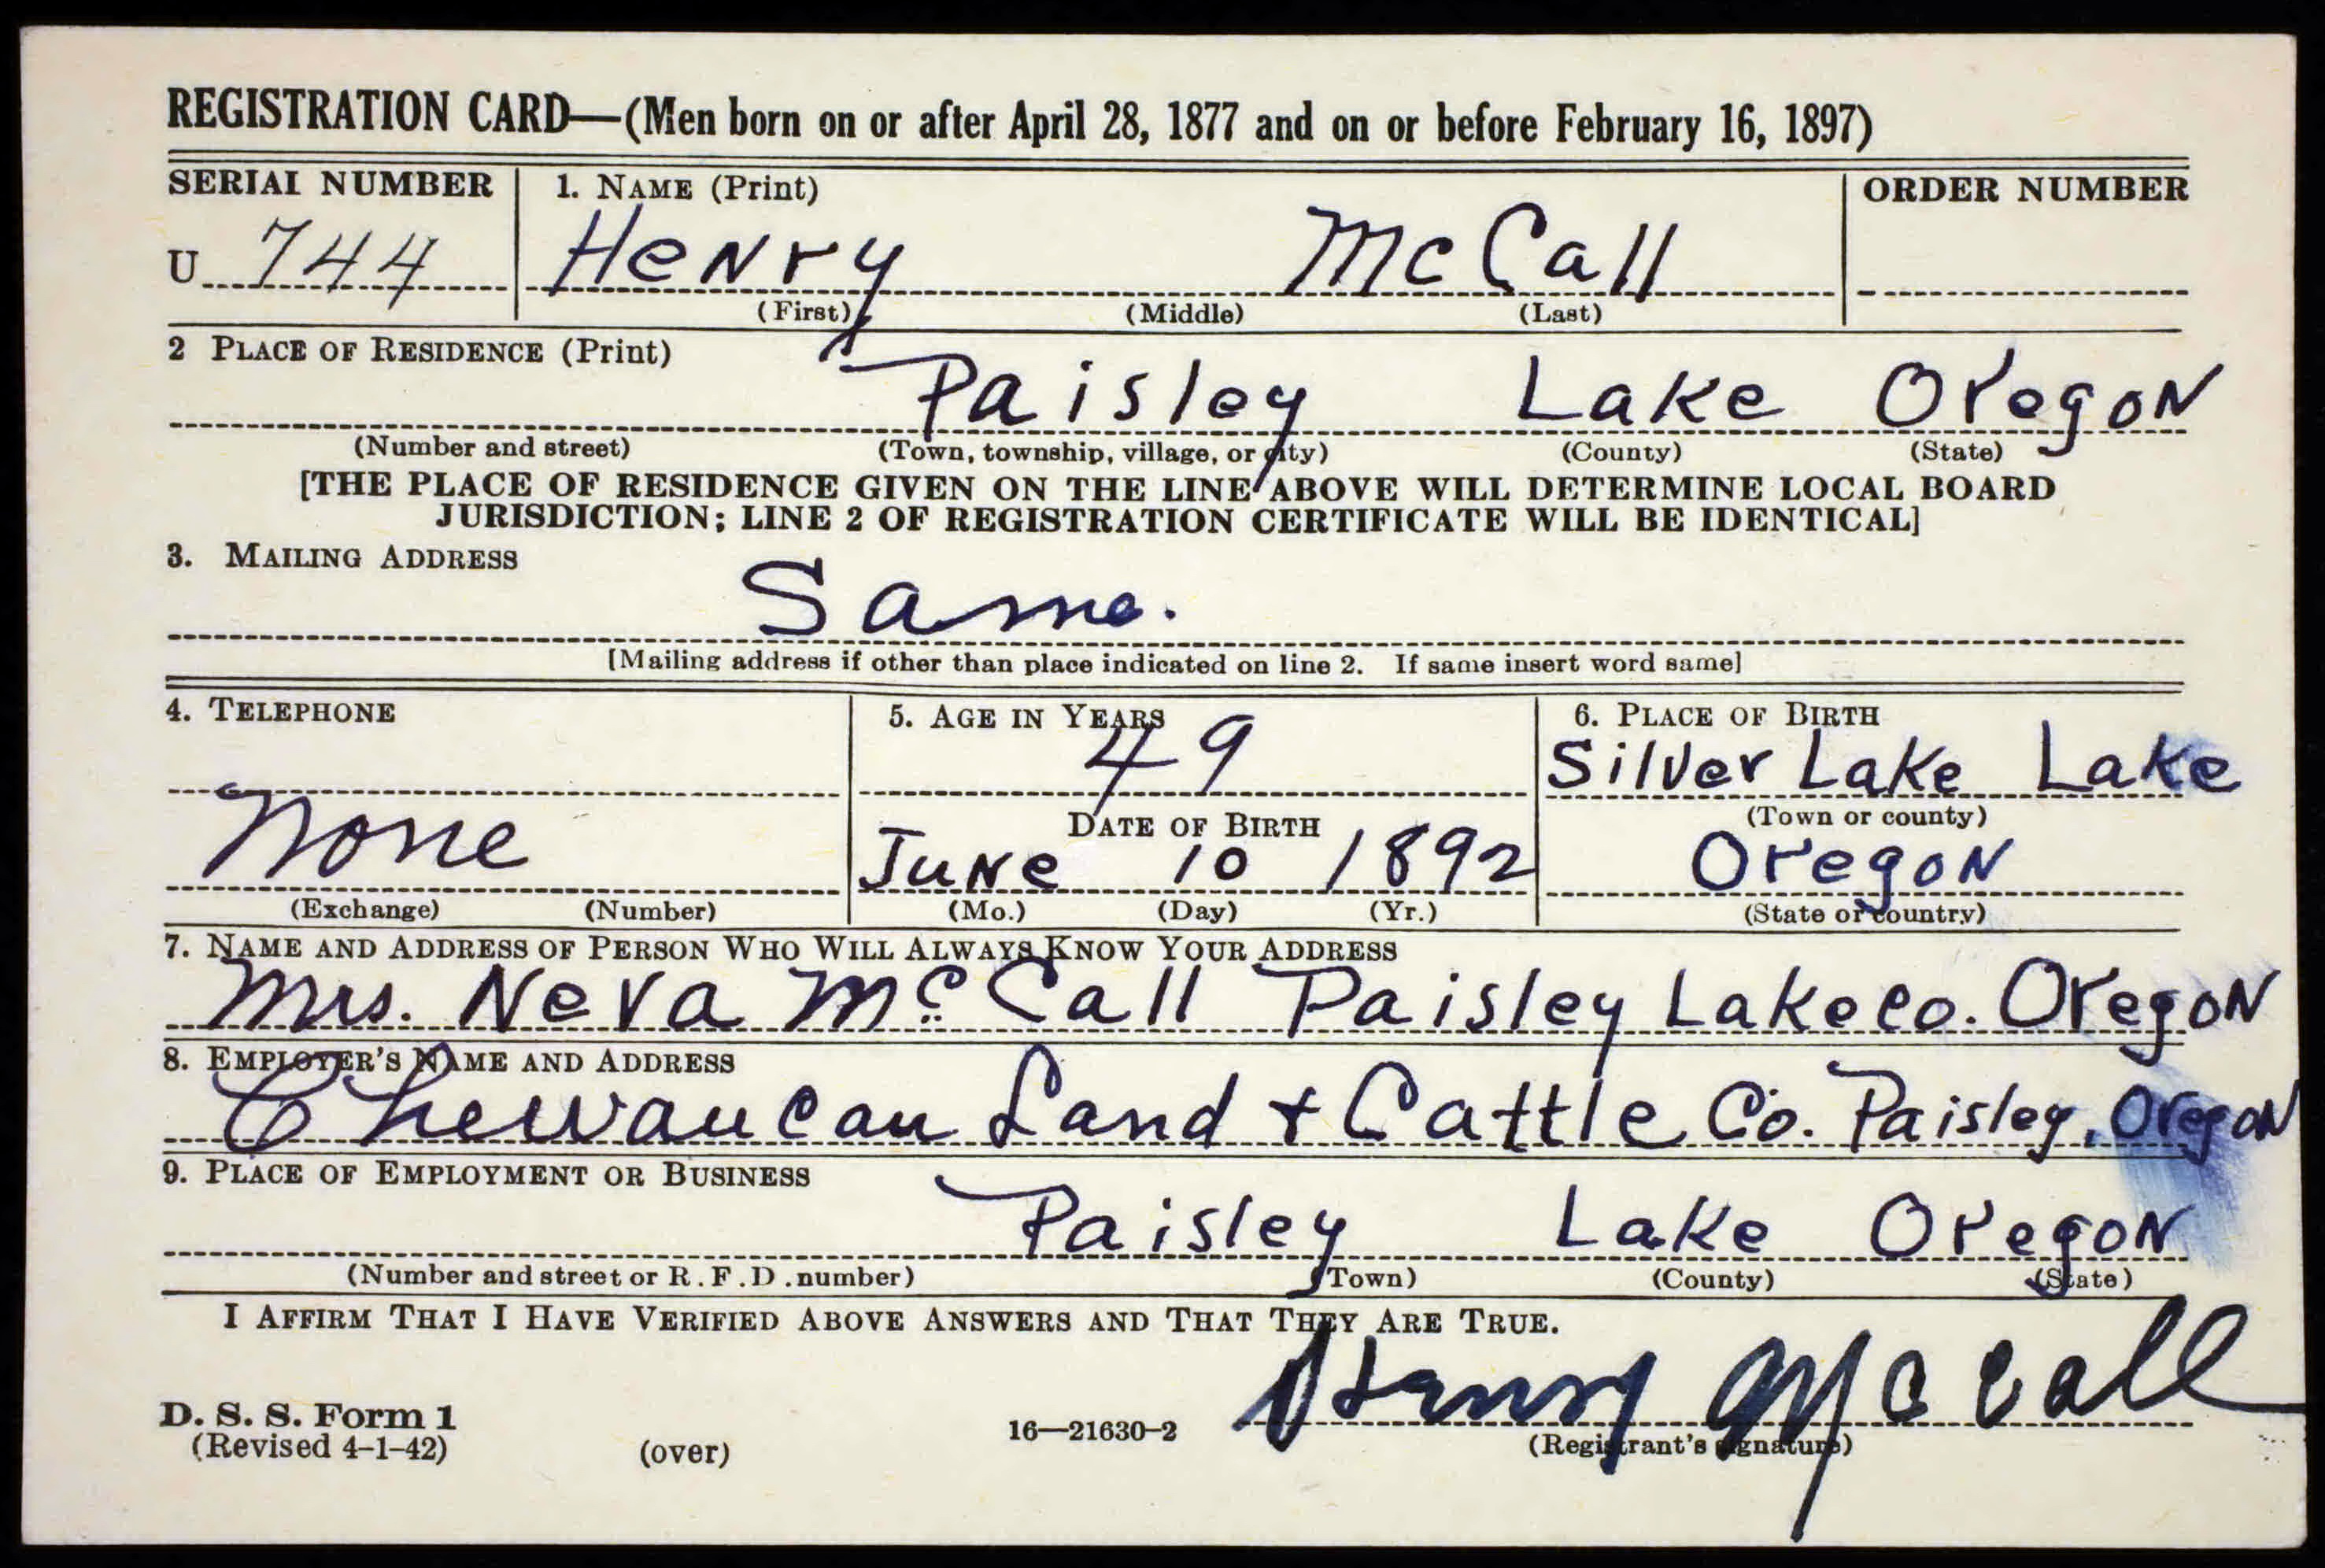 REGISTRATION CARD—(Men born on or after April 28, 1877 and on or before February 16, 1897)
SERIAL NUMBER 1. NAME (Print) ORDER NUMBER
U 744 Henry McCall
(First) (Middle) (Last)
2 PLACE OF RESIDENCE (Print)
Paisley Lake Oregon
(Number and street) (Town, township, village, or city) (County) (State)
[THE PLACE OF RESIDENCE GIVEN ON THE LINE ABOVE WILL DETERMINE LOCAL BOARD
JURISDICTION; LINE 2 OF REGISTRATION CERTIFICATE WILL BE IDENTICAL]
3. MAILING ADDRESS
Same.
[Mailing address if other than place indicated on line 2. If same insert word same]
4. TELEPHONE 5. AGE IN YEARS 6. PLACE OF BIRTH
49 Silver Lake Lake
DATE OF BIRTH (Town or county)
None June 10 1892 Oregon
(Exchange) (Number) (Mo.) (Day) (Yr.) (State or country)
7. NAME AND ADDRESS OF PERSON WHO WILL ALWAYS KNOW YOUR ADDRESS
Mrs. Neva McCall Paisley Lake Co. Oregon
8. EMPLOYER'S NAME AND ADDRESS
Chewaucan Land + Cattle Co. Paisley, Oregon
9. PLACE OF EMPLOYMENT OR BUSINESS
Paisley Lake Oregon
(Number and street or R.F.D. number) (Town) (County) (State)
I AFFIRM THAT I HAVE VERIFIED ABOVE ANSWERS AND THAT THEY ARE TRUE.
Henry McCall
D. S. S. Form 1
(Revised 4-1-42) (over) 16—21630-2 (Registrant's signature)